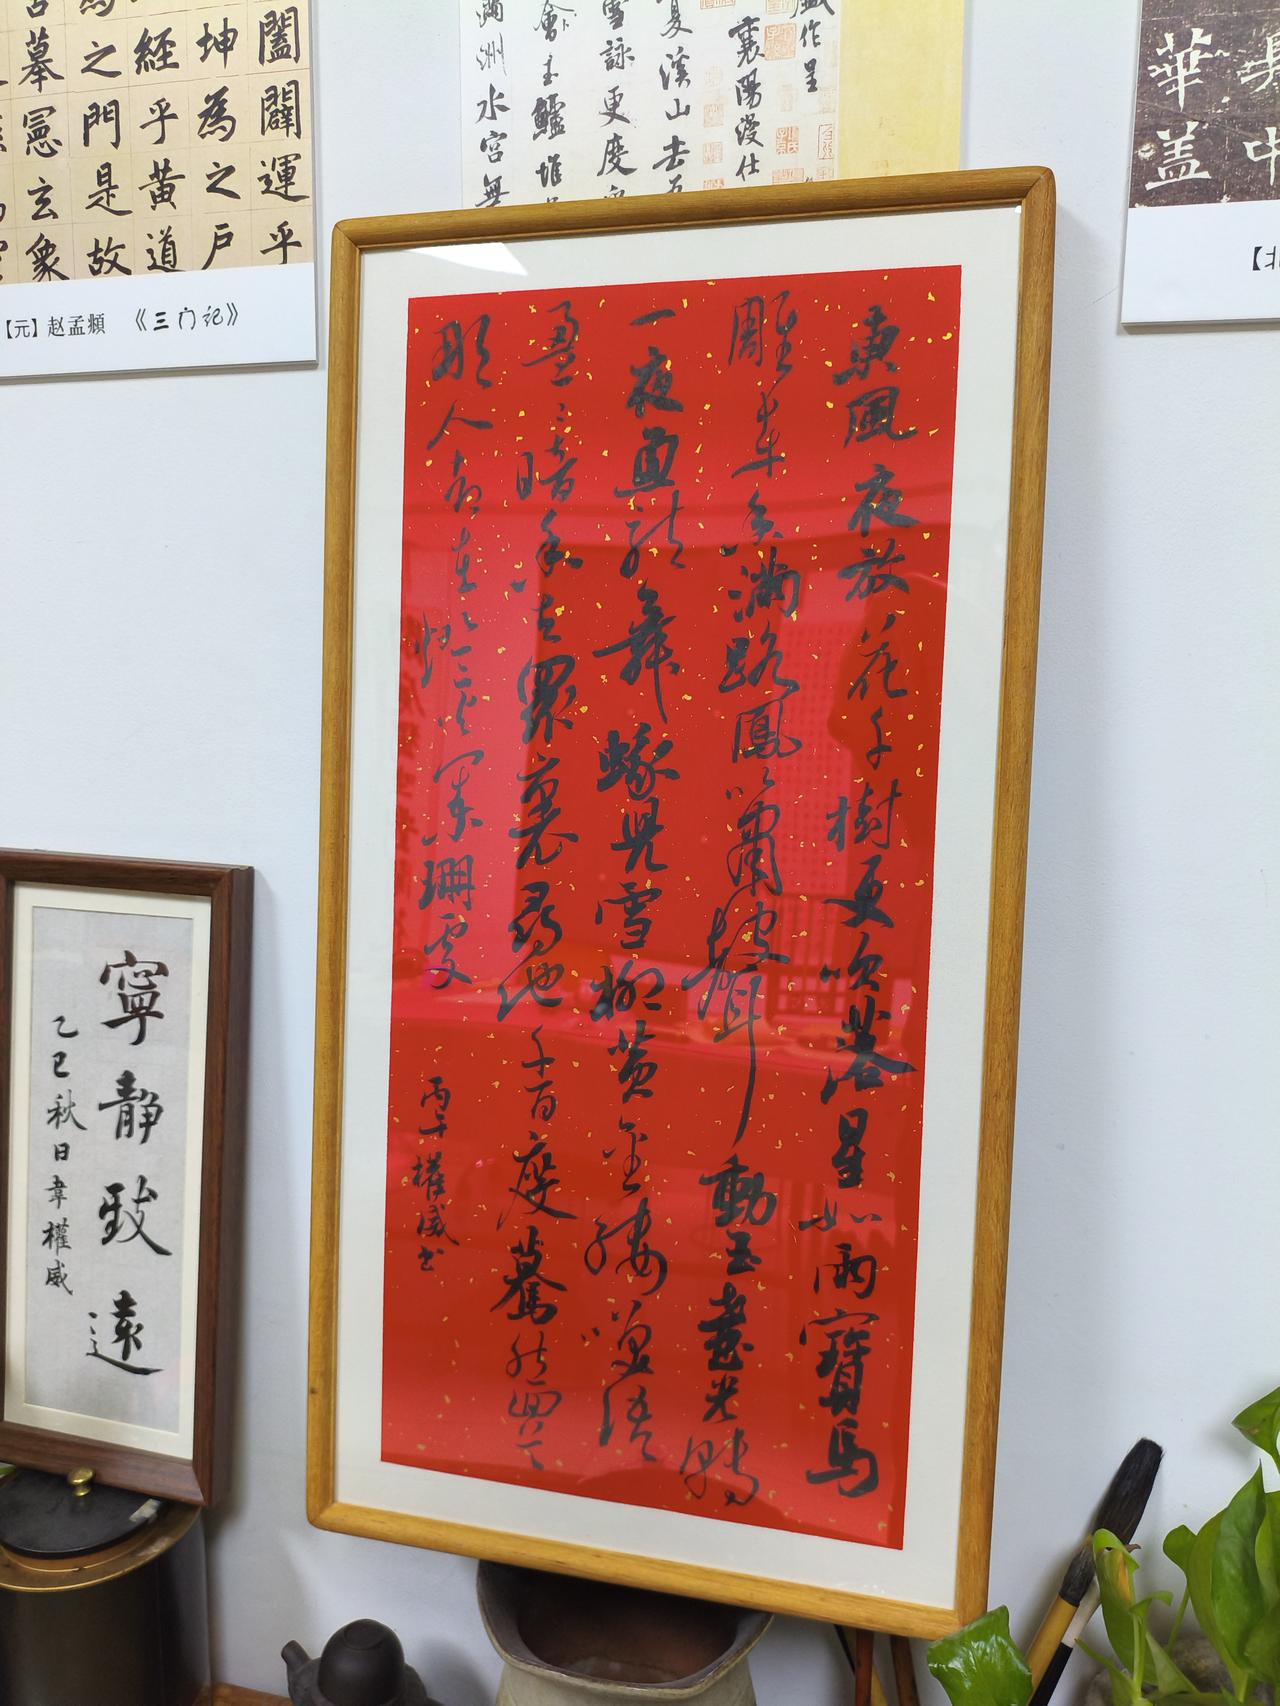 闔闢運乎
坤為之戶
經乎黃道
之門是故
摹憲玄象
【元】赵孟頫 《三门记》
作呈
襄陽漫仕
夏溪山去
雪詠更度
會玉鱸堆
洲水宮無
中
華蓋
【北
東風夜放花千樹更吹落星如雨寶馬
雕車香滿路鳳簫聲動玉壺光轉
一夜魚龍舞蛾兒雪柳黃金縷笑語
盈〻暗香去眾裏尋他千百度驀然回首
那人却在燈火闌珊處
丙午權威书
寧靜致遠
乙巳秋日韋權威